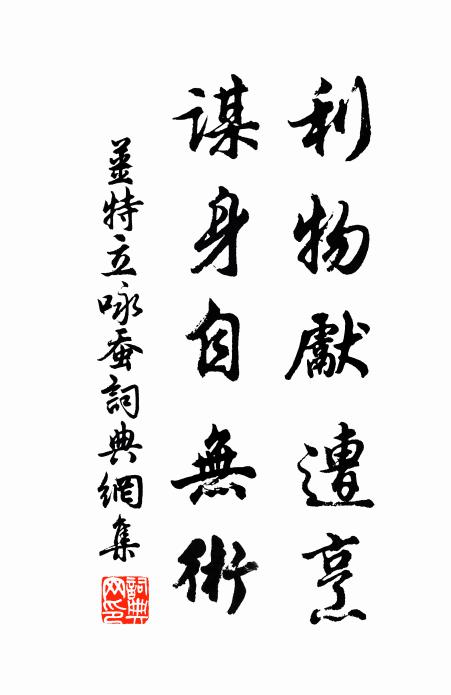 利物獻遭烹
謀身自無術
薑特立咏蚕詞典網集
詞典
网印